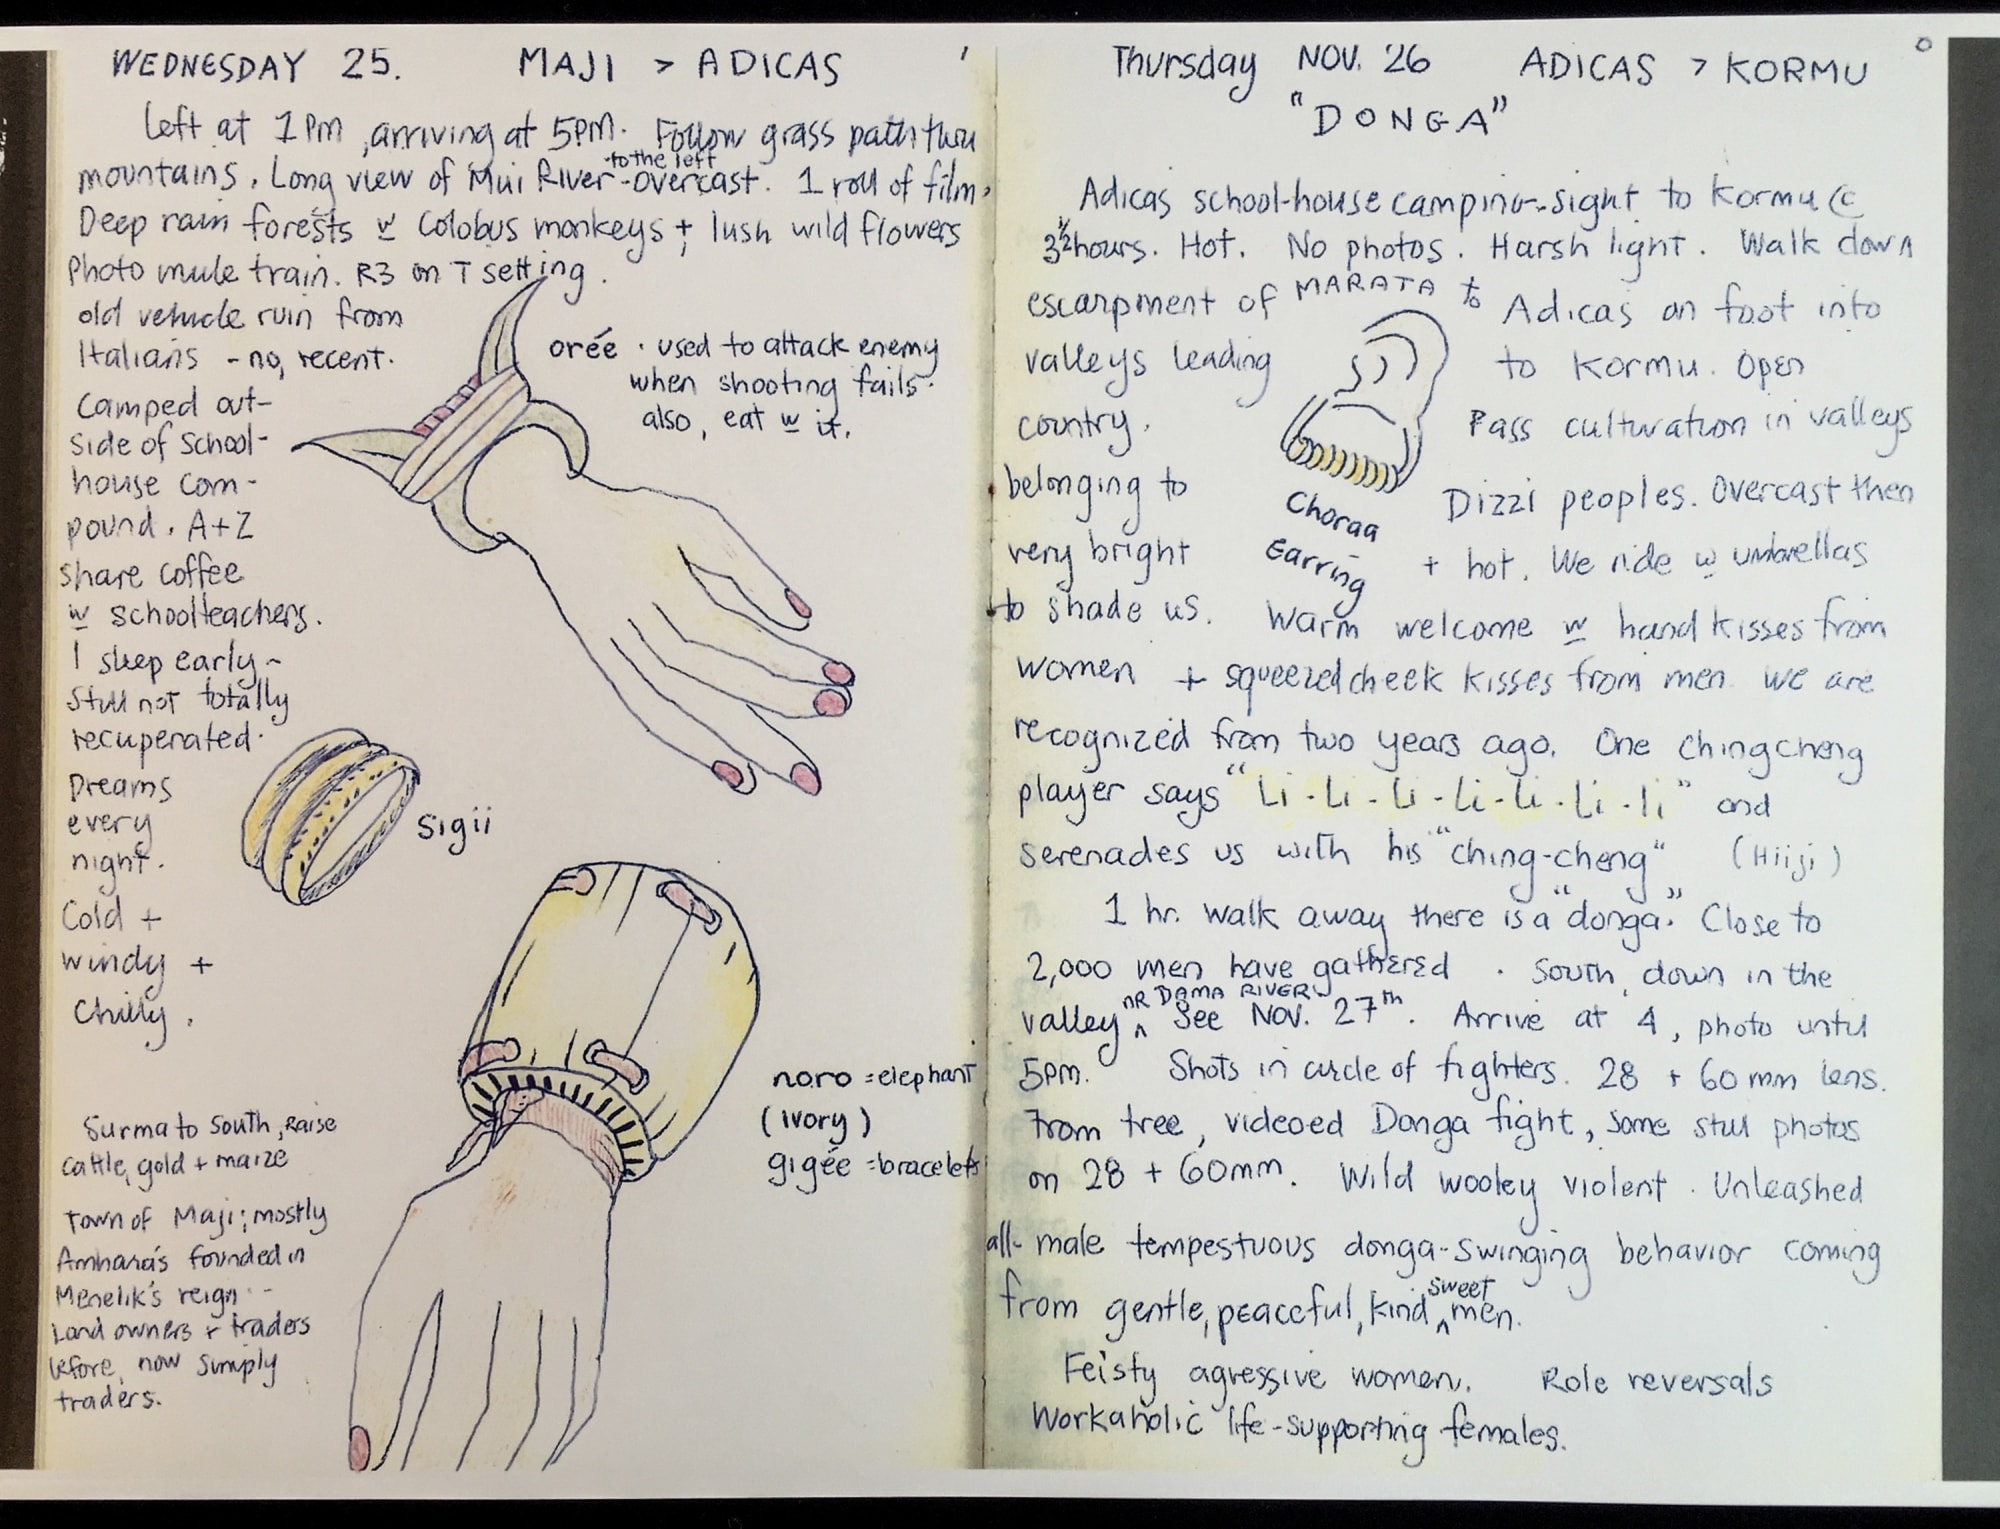 WEDNESDAY 25. MAJI > ADICAS
Left at 1 PM, arriving at 5PM. Follow grass path thru
mountains. Long view of Mui River -to the left -overcast. 1 roll of film.
Deep rain forests w Colobus monkeys + lush wild flowers
Photo mule train. R3 on T setting.
old vehicle ruin from
Italians - no, recent.
Camped out-
side of school-
house com-
pound. A+Z
share coffee
w schoolteachers.
I sleep early -
still not totally
recuperated.
Dreams
every
night.
Cold +
windy +
Chilly.
orée · used to attack enemy
when shooting fails.
also, eat w it.
sigii
noro = elephant
(ivory)
gigée = bracelets
Surma to South, Raise
cattle, gold + maize
Town of Maji; mostly
Amhara's founded in
Menelik's reign -
Land owners + traders
before, now simply
traders.
Thursday NOV. 26 ADICAS > KORMU
"DONGA"
Adicas school-house camping-sight to Kormu @
3½ hours. Hot. No photos. Harsh light. Walk down
escarpment of MARATA to Adicas on foot into
valleys leading to Kormu. Open
country. Pass culturation in valleys
belonging to Dizzi peoples. Overcast then
very bright + hot. We ride w umbrellas
to shade us. Warm welcome w hand kisses from
women + squeezed cheek kisses from men. We are
recognized from two years ago. One Chingcheng
player says "Li - Li - Li - Li - Li - Li - li" and
serenades us with his "ching-cheng" (Hiiji)
1 hr. walk away there is a "donga." Close to
2,000 men have gathered. South, down in the
valley nr DAMA RIVER See Nov. 27th. Arrive at 4, photo until
5pm. Shots in circle of fighters. 28 + 60 mm lens.
From tree, videoed Donga fight, some still photos
on 28 + 60mm. Wild wooley violent. Unleashed
all-male tempestuous donga-swinging behavior coming
from gentle, peaceful, kind sweet men.
Feisty agressive women. Role reversals
Workaholic life-supporting females.
Choraa
Earring